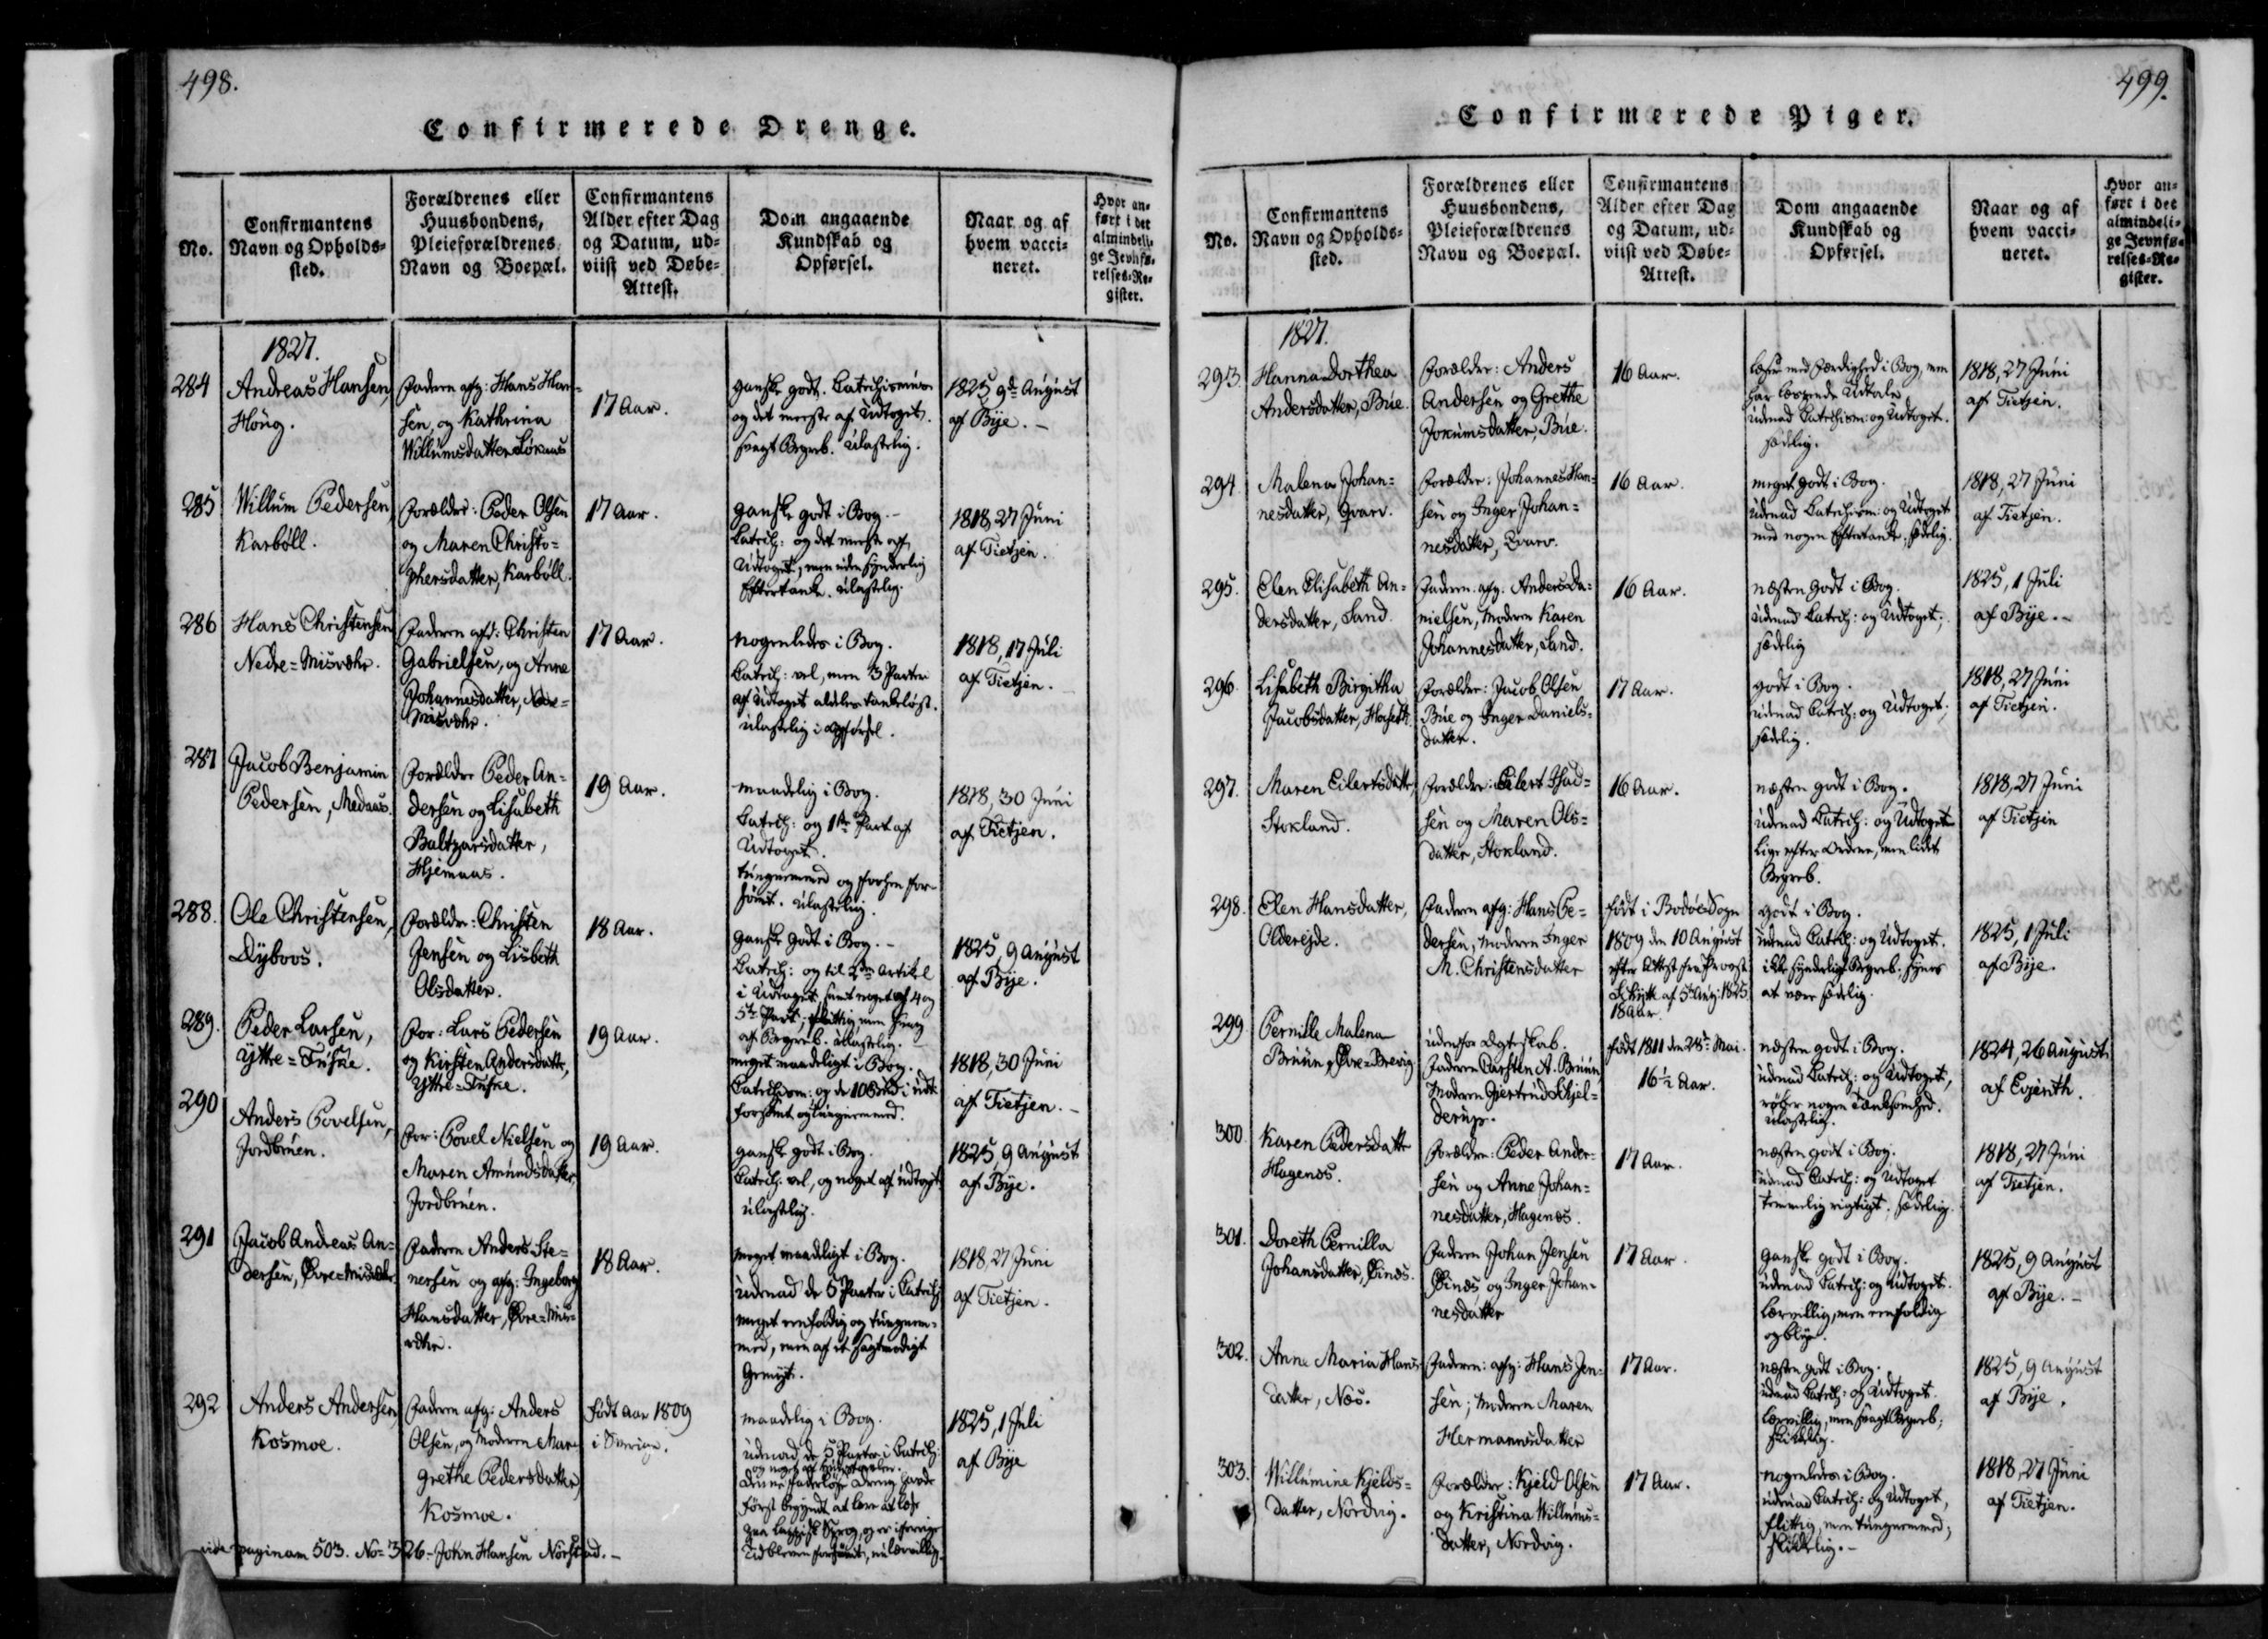 498.
Confirmerede Drenge.
No.
Confirmantens
Navn og Opholds-
sted.
Forældrenes eller
Huusbondens,
Pleieforældrenes
Navn og Boepæl.
Confirmantens
Alder efter Dag
og Datum, ud-
viist ved Døbe-
Attest.
Dom angaaende
Kundskab og
Opførsel.
Naar og af
hvem vacci-
neret.
Hvor an-
ført i det
almindeli-
ge Jevnfø-
relses-Re-
gister.
1827.
284
Andreas Hansen,
Høng.
Faderen afg: Hans Han-
sen, og Kathrina
Willumsdatter
17 Aar.
ganske godt. Catechismus
og det meeste af Udtoget.
svagt Begreb. Ulastelig.
1825, 9de August
af Bye. -
285
Willum Pedersen,
Karbøll.
Forældre: Peder Olsen
og Maren Christo-
phersdatter, Karbøll.
17 Aar.
ganske godt i Bog. -
Catech: og det meeste af
Udtoget, men uden synderlig
Eftertanke. Ulastelig.
1818, 27 Juni
af Tietjen.
286
Hans Christensen
Nedre=Misvær.
Faderen afd: Christen
Gabrielsen, og Anne
Johannesdatter, Nedre=
Misvær.
17 Aar.
nogenledes i Bog.
Catech: vel, men 3 Parter
af Udtoget aldeles tankeløst.
ulastelig i Opførsel.
1818, 17 Juli
af Tietjen.
287
Jacob Benjamin
Pedersen, Medaas.
Forældre Peder An-
dersen og Lisabeth
Baltzarsdatter,
Hjemaas.
19 Aar.
maadelig i Bog.
Catech: og 1ste Part af
Udtoget.
tungnemmed og forhen for-
sømt. Ulastelig.
1818, 30 Juni
af Tietjen.
288.
Ole Christensen,
Dybvos.
Forældre: Christen
Jensen og Lisbeth
Olsdatter.
18 Aar.
ganske godt i Bog. -
Catech: og til 2den Artikel
i Udtoget, samt noget af 4 og
5te Part; flittig, men svag
af Begreb. Ulastelig.
1825, 9 August
af Bye.
289.
Peder Larsen,
Ytre=Fuske.
For: Lars Pedersen
og Kirsten Andersdatter,
Ytre=Fuske.
19 Aar.
meget maadeligt i Bog.
Catechism: og de 10 Bud i Udt:
forsømt og tungnemmed.
1818, 30 Juni
af Tietjen. -
290
Anders Povelsen,
Jordbruen.
For: Povel Nielsen og
Maren Amundsdatter,
Jordbruen.
19 Aar.
ganske godt i Bog.
Catech. vel, og noget af Udtoget.
ulastelig.
1825, 9 August
af Bye.
291
Jacob Andreas An-
dersen, Øvre=Misvær
Faderen Anders Ste-
nersen og afg: Ingeborg
Hansdatter, Øvre=Mis-
vær.
18 Aar.
meget maadeligt i Bog.
udenad de 5 Parter i Catech:
meget eenfoldig og tungnem-
med, men af et sagtmodigt
Gemyt.
1818, 27 Juni
af Tietjen.
292
Anders Andersen
Kosmoe.
Faderen afg: Anders
Olsen, og Moderen Mar-
grethe Pedersdatter,
Kosmoe.
født Aar 1809
i Sverige.
maadelig i Bog.
udenad de 5 Parter i Catech:
Denne faderløse Dreng havde
først begyndt at lære at læse
paa Lappisk Sprog, og er i forrige
Tid bleven forsømt, nu lærvillig.
1825, 1 Juli
af Bye
vide paginam 503. No= 326 - John Hansen Norstad. -
499.
Confirmerede Piger.
No.
Confirmantens
Navn og Opholds-
sted.
Forældrenes eller
Huusbondens,
Pleieforældrenes
Navn og Boepæl.
Confirmantens
Alder efter Dag
og Datum, ud-
viist ved Døbe-
Attest.
Dom angaaende
Kundskab og
Opførsel.
Naar og af
hvem vacci-
neret.
Hvor an-
ført i det
almindeli-
ge Jevnfø-
relses-Re-
gister.
1827.
293.
Hanna Dorthea
Andersdatter, Bue.
Forældre: Anders
Andersen og Grethe
Jokumsdatter, Bue.
16 Aar.
læser med Færdighed i Bog, men
har læspende Udtale
udenad Catechism: og Udtoget.
sædelig.
1818, 27 Juni
af Tietjen.
294.
Malena Johan-
nesdatter, Qvarv.
Forældre: Johannes Han-
sen og Inger Johan-
nesdatter, Qvarv.
16 Aar.
meget godt i Bog.
udenad Catechism: og Udtoget
med nogen Eftertanke. sædelig.
1818, 27 Juni
af Tietjen.
295.
Elen Elisabeth An-
dersdatter, Sand.
Faderen afg. Anders Da-
nielsen, Moderen Karen
Johannesdatter, Sand.
16 Aar.
næsten godt i Bog.
udenad Catech: og Udtoget;
sædelig
1825, 1 Juli
af Bye. -
296.
Lisabeth Birgitha
Jacobsdatter,
Forældre: Jacob Olsen
Bue og Inger Daniels-
datter.
17 Aar.
godt i Bog.
udenad Catech: og Udtoget;
sædelig.
1818, 27 Juni
af Tietjen.
297.
Maren Eilertsdatter,
Stokland.
Forældre: Eilert Isac-
sen og Maren Ols-
datter, Stokland.
16 Aar.
næsten godt i Bog.
udenad Catech: og Udtoget
lige efter Ordene, men lidet
Begreb.
1818, 27 Juni
af Tietjen
298.
Elen Hansdatter,
Olderejde.
Faderen afg: Hans Pe-
dersen, Moderen Inger
M. Christensdatter
født i Bodøe Sogn
1809 den 10 August
efter Attest fra Provst
af 5te Aug: 1825.
18 Aar.
godt i Bog.
udenad Catech: og Udtoget.
ikke synderligt Begreb; synes
at være sædelig.
1825, 1 Juli
af Bye.
299
Pernille Malena
Bruun, Øvre=Brevig
udenfor Ægteskab.
Faderen Carsten A. Bruun
Moderen Giertrud Schjel-
derup.
født 1811 den 28de Mai.
16½ Aar.
næsten godt i Bog.
udenad Catech: og Udtoget,
røber nogen Tænksomhed.
ulastelig.
1824, 26 August
af Evjenth.
300.
Karen Pedersdatter
Hagenæs.
Forældre: Peder Ander-
sen og Anne Johan-
nesdatter, Hagenæs.
17 Aar.
næsten godt i Bog.
udenad Catech: og Udtoget
temmelig rigtigt; sædelig.
1818, 27 Juni
af Tietjen.
301.
Doreth Pernilla
Johansdatter, Øinæs.
Faderen Johan Jensen
Øinæs og Inger Johan-
nesdatter
17 Aar.
ganske godt i Bog.
udenad Catech: og Udtoget.
lærvillig, men eenfoldig
og blye.
1825, 9 August
af Bye. -
302.
Anne Maria Hans-
datter, Næs.
Faderen: afg: Hans Jen-
sen; Moderen Maren
Hermannsdatter
17 Aar.
næsten godt i Bog.
udenad Catech: og Udtoget.
lærvillig, men svagt Begreb;
skikkelig.
1825, 9 August
af Bye.
303.
Willumine Kjelds-
datter, Nordvig.
Forældre: Kjeld Olsen
og Kristina Willums-
datter, Nordvig.
17 Aar.
nogenledes i Bog.
udenad Catech: og Udtoget,
flittig, men tungnemmed;
skikkelig. -
1818, 27 Juni
af Tietjen.